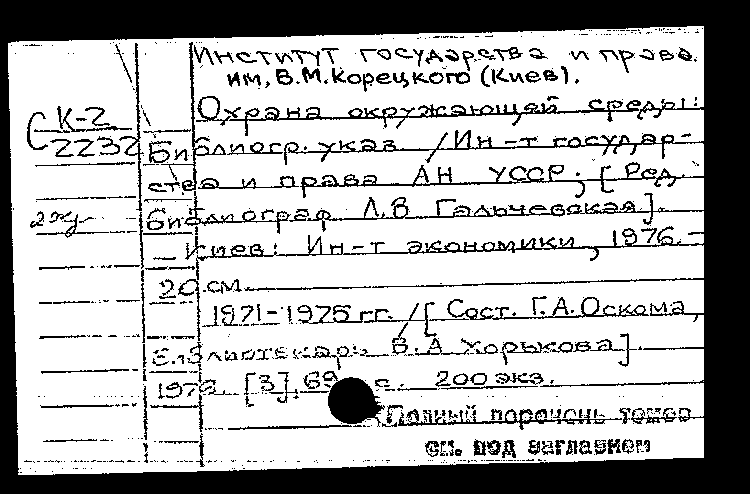 Институт государства и права
им. В.М. Корецкого (Киев).
К-2
2232
Охрана окружающей среды:
Библиогр. указ. / Ин-т государ-
ства и права АН УССР; [Ред.
2 экз
библиограф Л.В Гальчевская].
— Киев: Ин-т экономики, 1976.—
20 см.
1971-1975 гг. / [Сост. Г.А. Оскома,
Библиотекарь В.А Хорькова].
1976. [3], 69 с. 200 экз.
Полный перечень томов
см. под заглавием